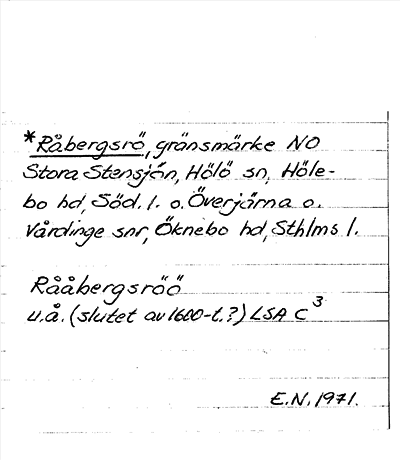 *Råbergsrö, gränsmärke NO
Stora Stensjön, Hölö sn, Höle-
bo hd, Söd. l. o. Överjärna o.
Vårdinge snr, Öknebo hd, Sthlms l.
Rååbergsröö
u.å. (slutet av 1600-t.?) LSA C³
E.N. 1971.